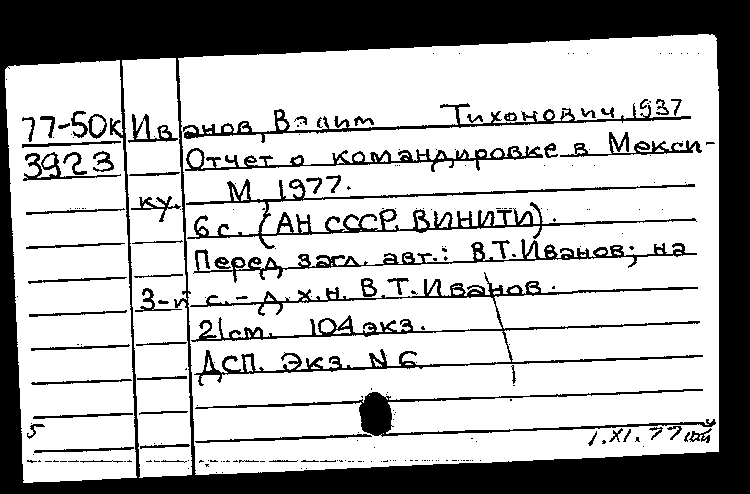 77-50к Иванов, Вадим Тихонович, 1937
3923 Отчет о командировке в Мекси-
ку. М., 1977.
6 с. (АН СССР. ВИНИТИ).
Перед загл. авт.: В.Т.Иванов; на
3-й с. - д.х.н. В.Т.Иванов.
21 см. 104 экз.
ДСП. Экз. N 6
5 1.XI.77